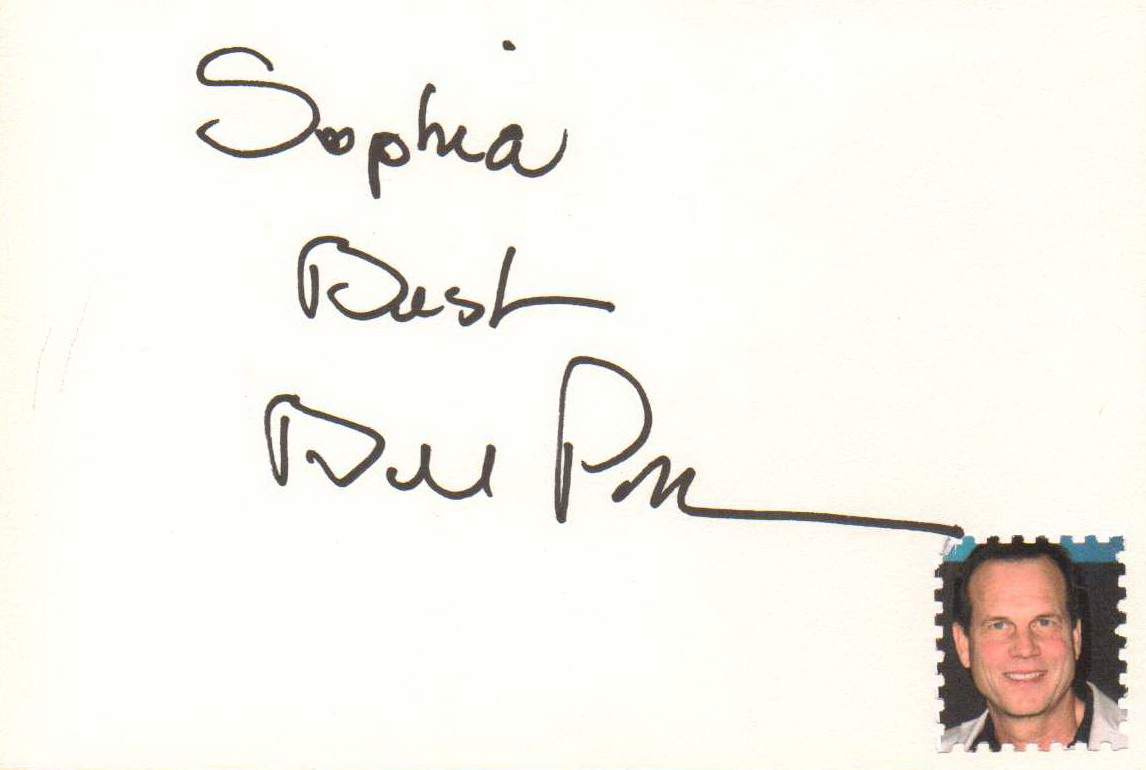 Sophia
Best
Bill